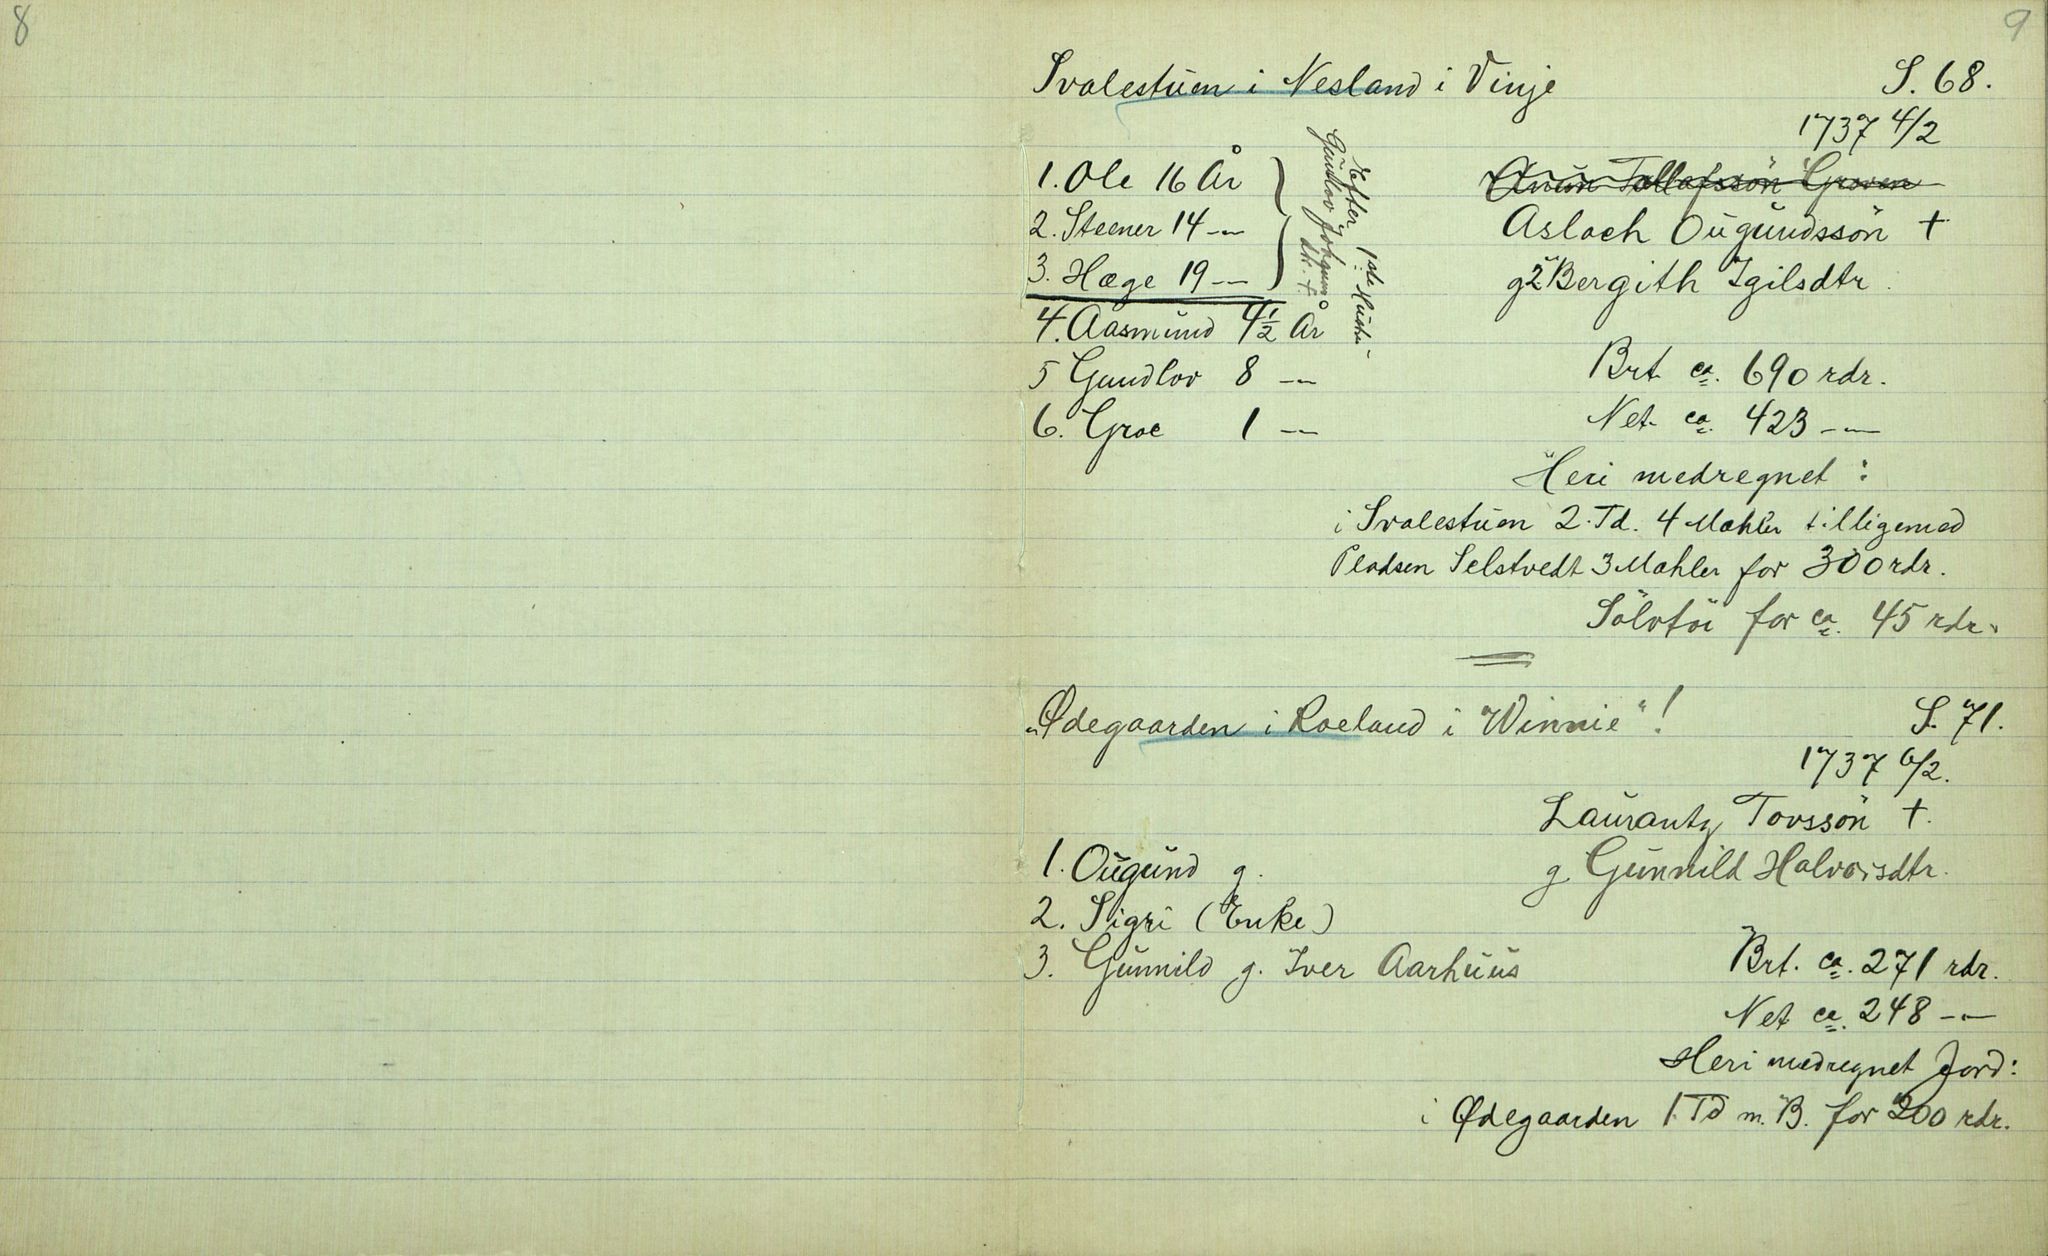 8
9
Svalestuen i Nesland i Vinje S. 68.
1737 4/2
1. Ole 16 År
2. Steener 14 -"-
3. Hæge 19 -"-
Efter 1ste Hustru
Gundlov dtr. †
4. Aasmund 4½ År
5 Gundlov 8 -"-
6. Groe 1 -"-
Anun Tollefssön Groven
Aslach Ougundssön †
g2° Bergith Igilsdtr.
Brt. ca. 690 rdr.
Net. ca. 423 -"-
Heri medregnet:
i Svalestuen 2 Td. 4 Mæhler tilligemed
Pladsen Selstvedt 3 Mæhler for 300 rdr.
Sölvtöi for ca. 45 rdr.
"Ødegaarden i Roeland i "Winnie"! S. 71.
1737 6/2.
Laurantz Tovssön †.
g. Gunnild Halvorsdtr.
1. Ougund g.
2. Sigri (Enke)
3. Gunnild g. Iver Aarhuus
Brt. ca. 271 rdr.
Net ca. 248 -"-
Heri medregnet Jord:
i Ødegaarden 1 Td m. B. for 200 rdr.